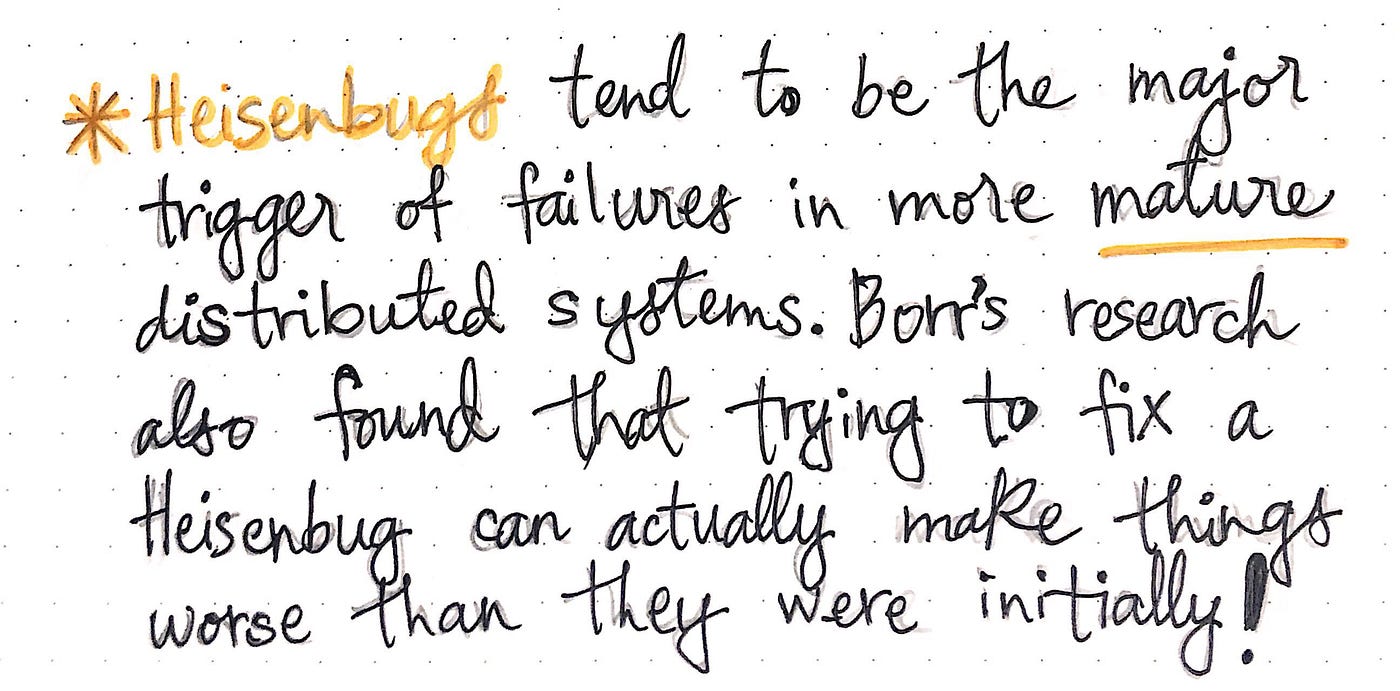 * Heisenbugs tend to be the major
trigger of failures in more mature
distributed systems. Borr's research
also found that trying to fix a
Heisenbug can actually make things
worse than they were initially!